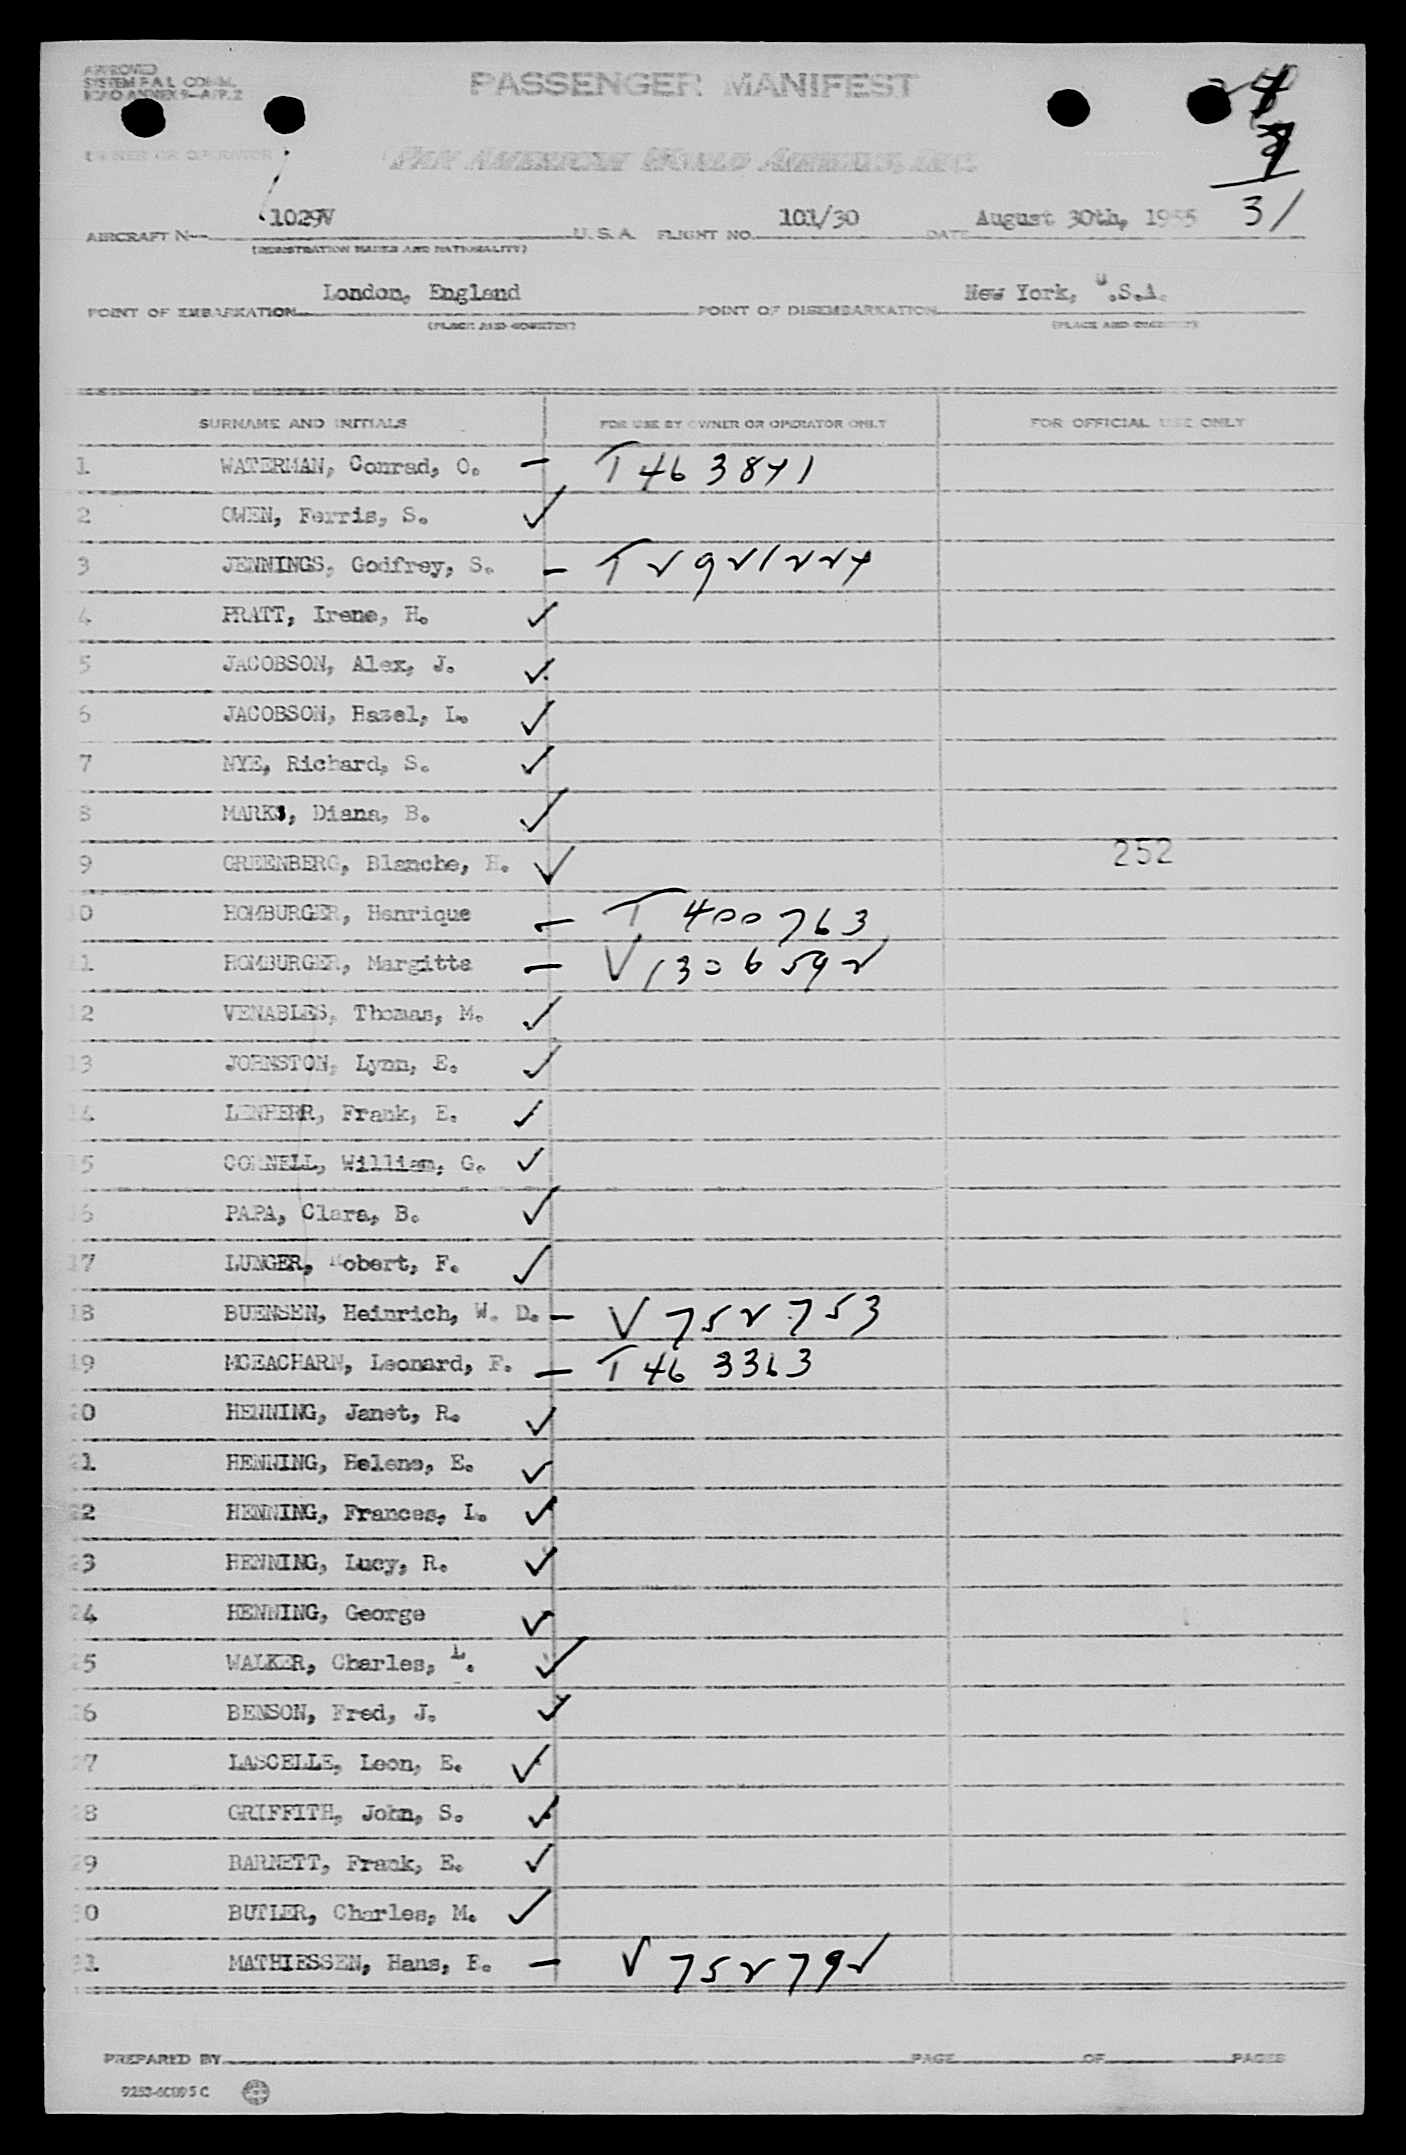 APPROVED
SYSTEM F.A.L. COMM.
ICAO ANNEX 9-APP. 2
PASSENGER MANIFEST
OWNER OR OPERATOR
PAN AMERICAN WORLD AIRWAYS, INC.
31
AIRCRAFT No. 1029V U.S.A. FLIGHT NO. 101/30 DATE August 30th, 1955
(REGISTRATION MARKS AND NATIONALITY)
POINT OF EMBARKATION London, England POINT OF DISEMBARKATION New York, U.S.A.
(PLACE AND COUNTRY) (PLACE AND COUNTRY)
SURNAME AND INITIALS FOR USE BY OWNER OR OPERATOR ONLY FOR OFFICIAL USE ONLY
1 WATERMAN, Conrad, O. — T 463871
2 OWEN, Ferris, S. ✓
3 JENNINGS, Godfrey, S. — T 2921224
4 PRATT, Irene, H. ✓
5 JACOBSON, Alex, J. ✓
6 JACOBSON, Hazel, L. ✓
7 NYE, Richard, S. ✓
8 MARKS, Diana, B. ✓
9 GREENBERG, Blanche, H. ✓ 252
10 HOMBURGER, Henrique — T 400763
11 HOMBURGER, Margitta — V 1306592
12 VENABLES, Thomas, M. ✓
13 JOHNSTON, Lynn, E. ✓
14 LENHERR, Frank, E. ✓
15 CORNELL, William, G. ✓
16 PAPA, Clara, B. ✓
17 LUNGER, Robert, F. ✓
18 BUENSEN, Heinrich, W. D. — V 752753
19 MCEACHARN, Leonard, F. — T 463363
20 HENNING, Janet, R. ✓
21 HENNING, Helene, E. ✓
22 HENNING, Frances, L. ✓
23 HENNING, Lucy, R. ✓
24 HENNING, George ✓
25 WALKER, Charles, L. ✓
26 BENSON, Fred, J. ✓
27 LASCELLE, Leon, E. ✓
28 GRIFFITH, John, S. ✓
29 BARNETT, Frank, E. ✓
30 BUTLER, Charles, M. ✓
31 MATHIESSEN, Hans, P. — V 752792
PREPARED BY PAGE OF PAGES